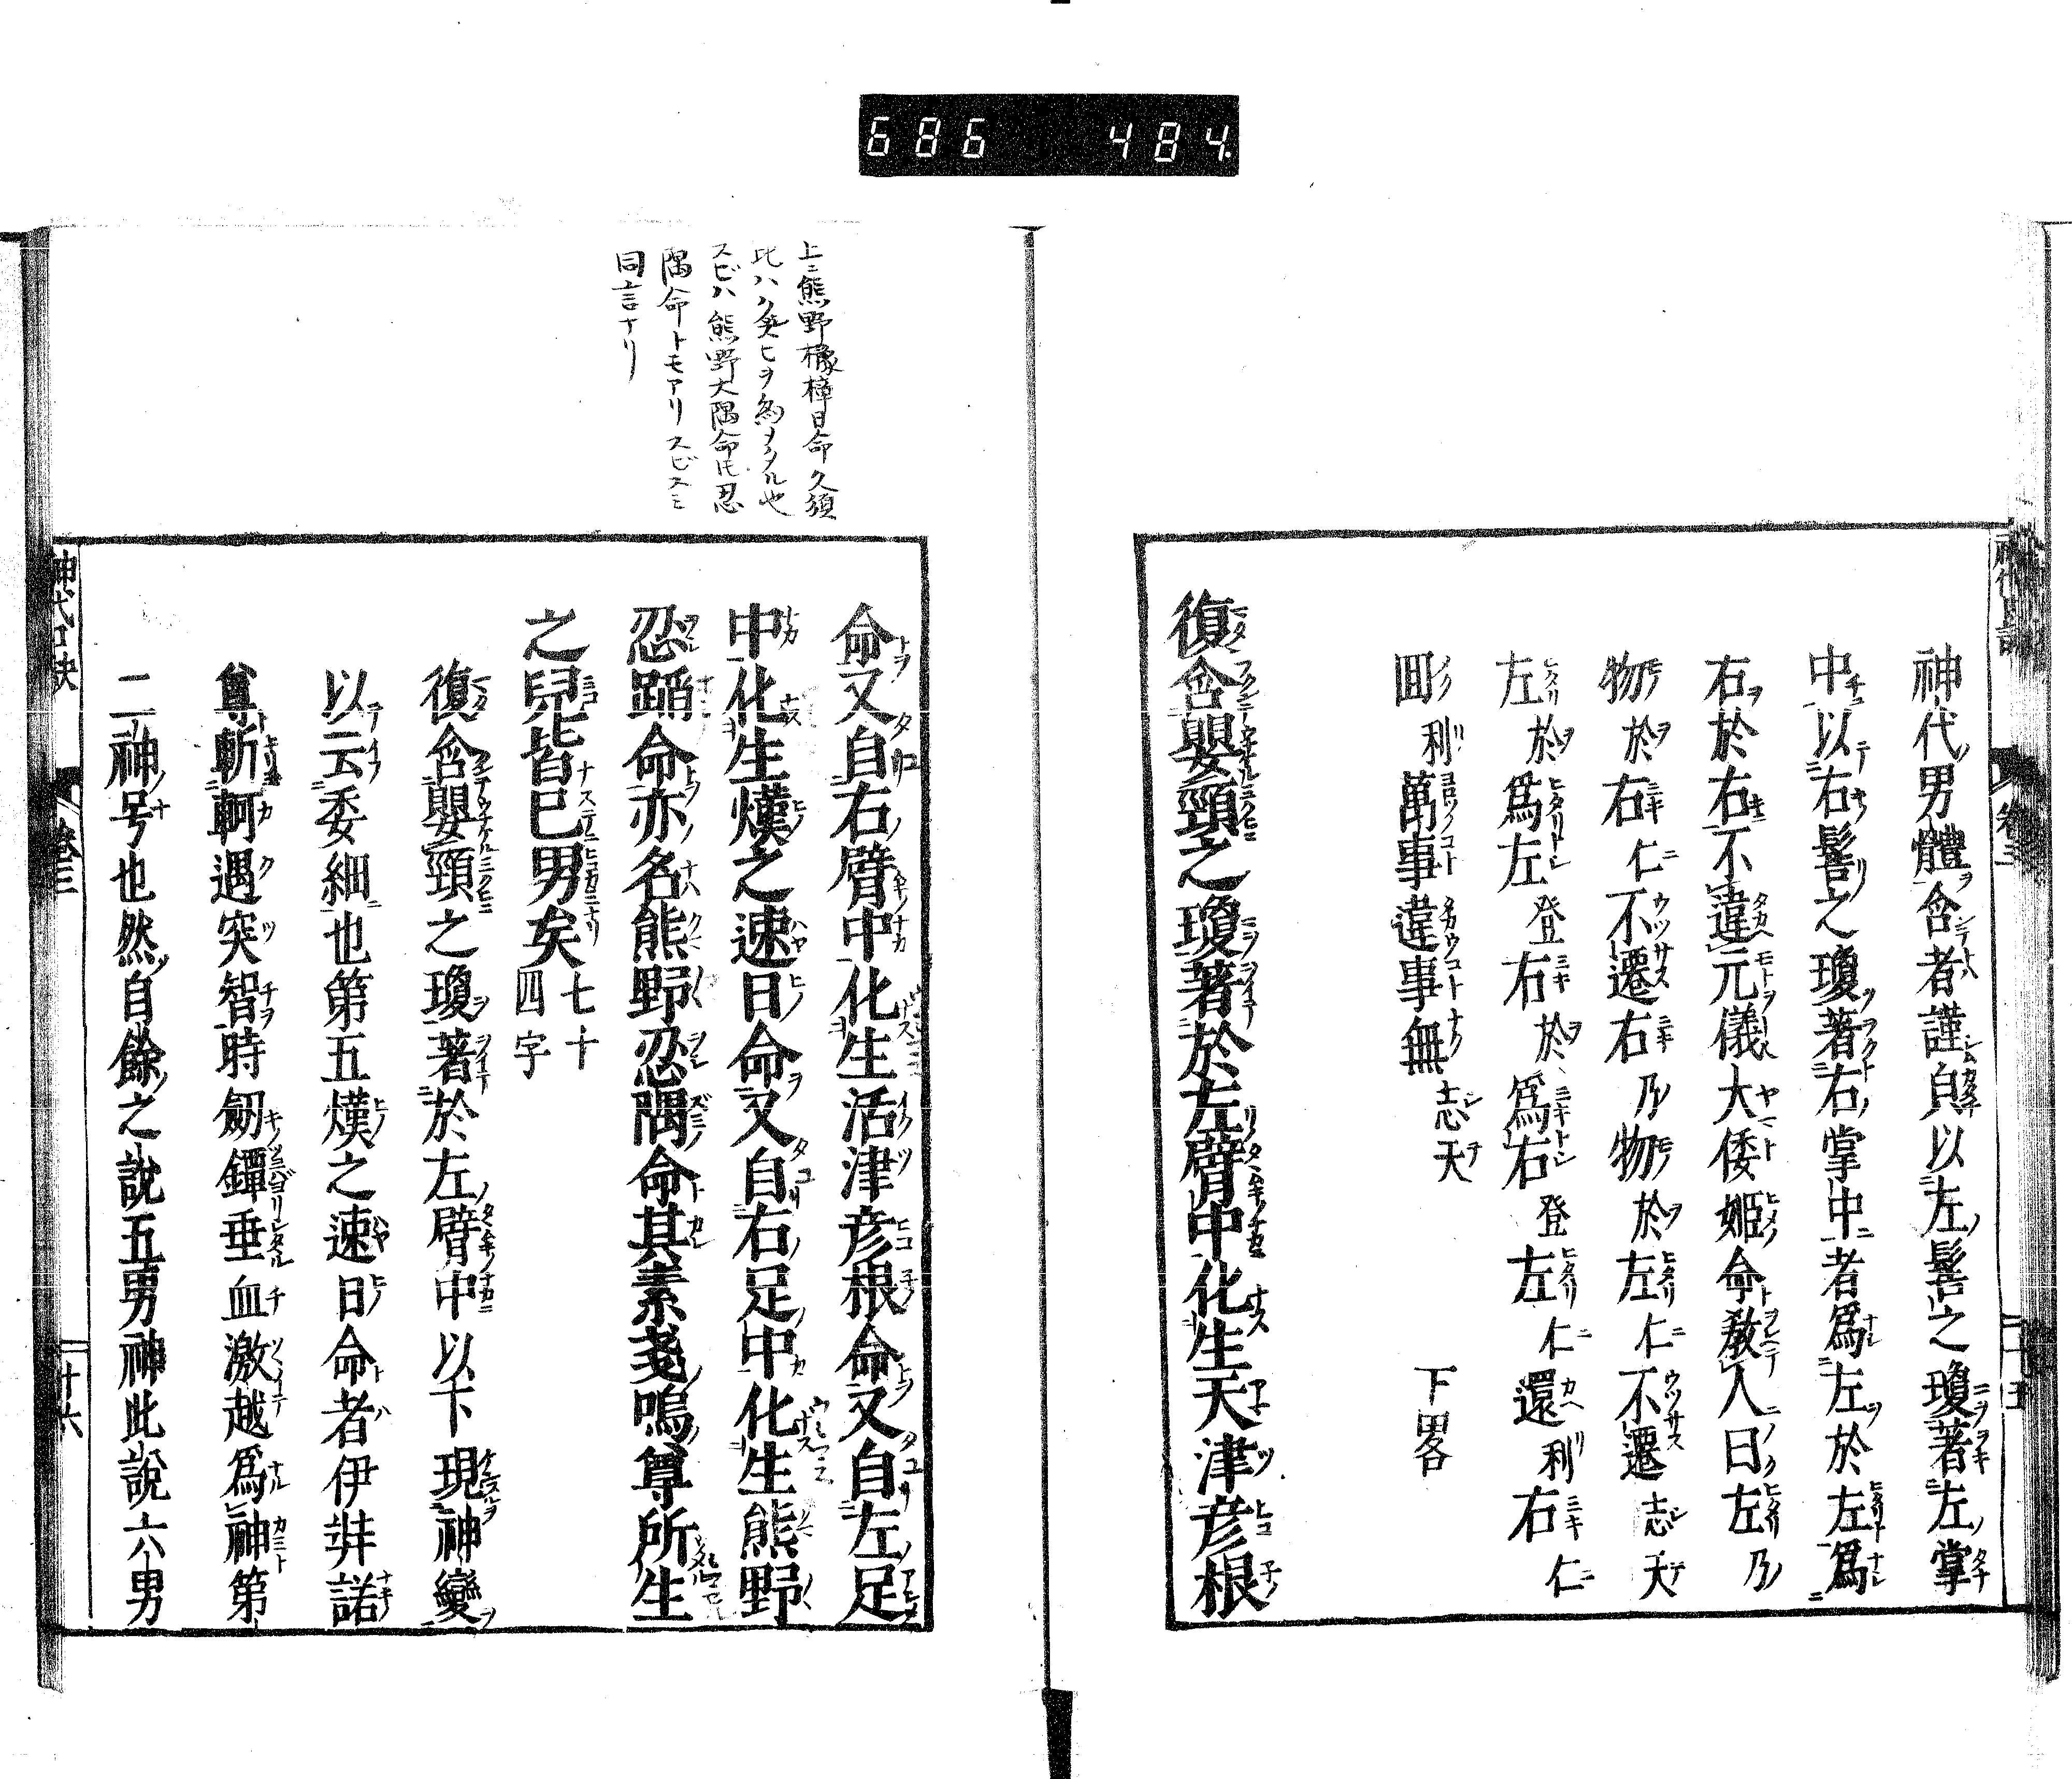 686 484
神代男體含者謹貞以左髻之瓊著左掌
中以右髻之瓊著右掌中者爲左於左爲
右於右不違元儀大倭姬命敎人曰左乃
物於右仁不遷右乃物於左仁不遷志天
左於爲左登右於爲右登左仁還利右仁
回利萬事違事無志天 下畧
復含嬰頸之瓊著於左臂中化生天津彦根
命又自右臂中化生活津彦根命又自左足
中化生熯之速日命又自右足中化生熊野
忍蹈命亦名熊野忍隅命其素戔嗚尊所生
之兒皆已男矣 七十
四字
復含嬰頸之瓊著於左臂中以下現神變
以云委細也第五熯之速日命者伊弉諾
尊斬軻遇突智時劔鐔垂血激越爲神第
二神号也然自餘之說五男神此說六男
上ニ熊野櫲樟日命久須
スビハ熊野大隅命氏忍
隅命トモアリスビスミ
同言ナリ
神代口訣
卷三
二十五
二十六